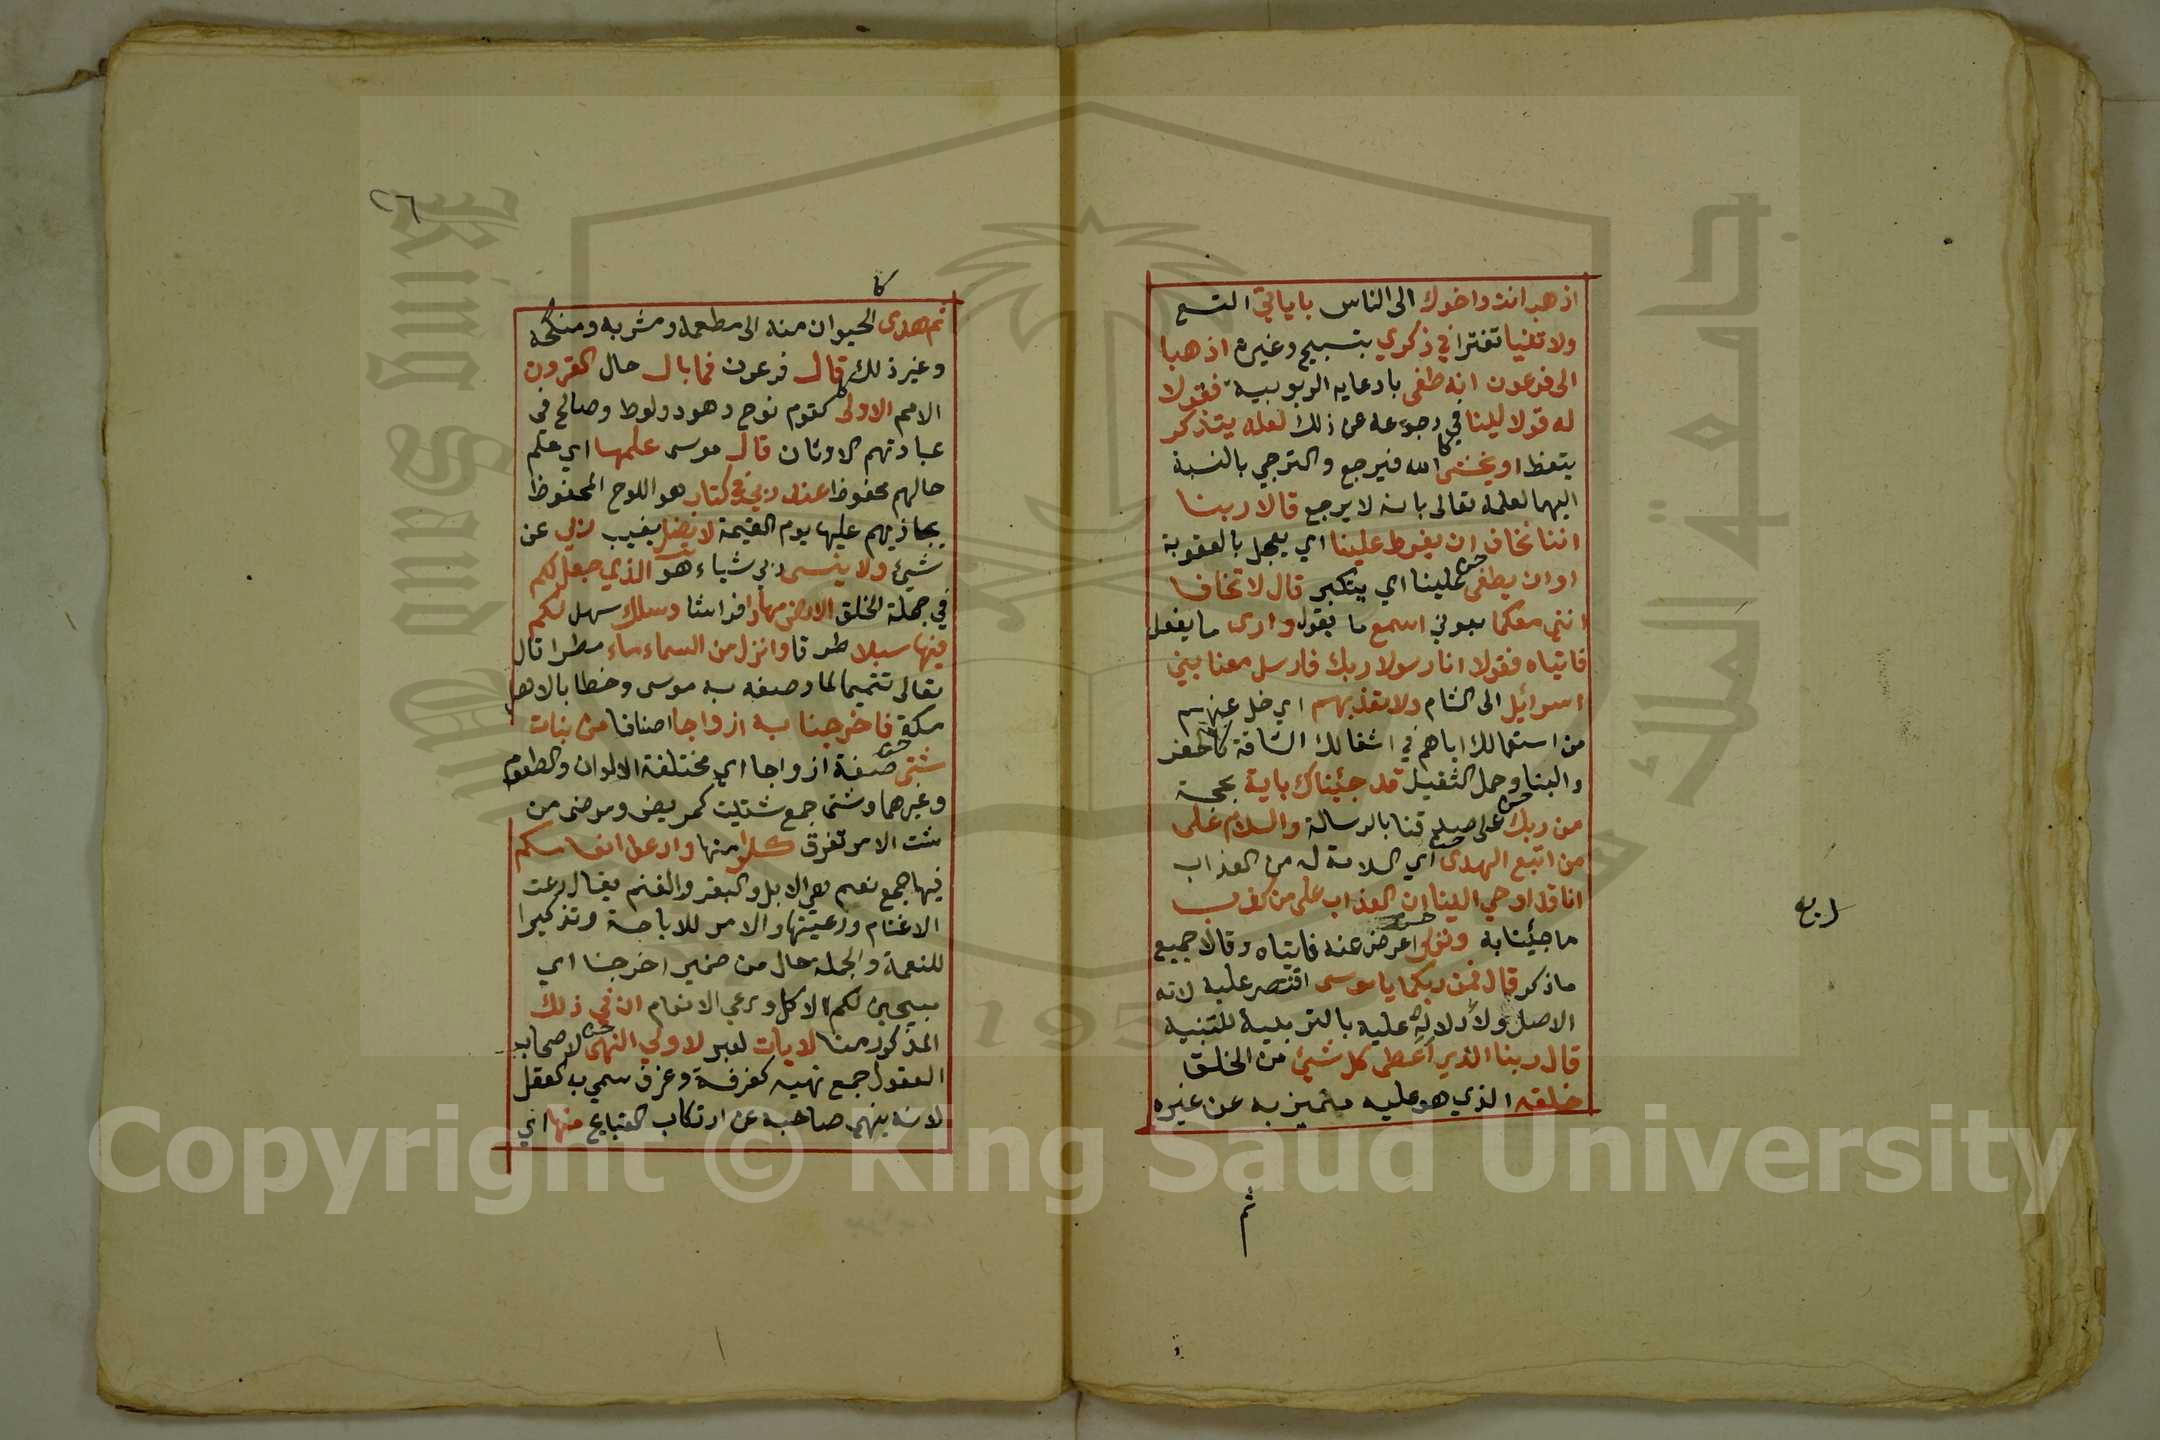 اذهب انت واخوك الى الناس باياتي التسع
ولا تنيا تفترا في ذكري بتسبيح وغيره اذهبا
الى فرعون انه طغى بادعايه الربوبية فقولا
له قولا لينا في رجوعه عن ذلك لعله يتذكر
يتعظ او يخشى الله فيرجع والترجي بالنسبة
اليهما لعلمه تعالى بانه لا يرجع قالا ربنا
اننا نخاف ان يفرط علينا اي يعجل بالعقوبة
او ان يطغى علينا اي يتكبر قال لا تخافا
انني معكما بعوني اسمع ما يقول وارى ما يفعل
فاتياه فقولا انا رسولا ربك فارسل معنا بني
اسرائيل الى الشام ولا تعذبهم اي خل عنهم
من استعمالك اياهم في اشغالك الشاقة كالحفر
والبنا وحمل الثقيل قد جئناك باية بحجة
من ربك على صدقنا بالرسالة والسلام على
من اتبع الهدى اي السلامة له من العذاب
انا قد اوحي الينا ان العذاب على من كذب
ما جئنا به وتولى اعرض عنه فاتياه وقالا جميع
ما ذكر قال فمن ربكما يا موسى اقتصر عليه لانه
الاصل ولادلاله عليه بالتربية للتبنيه
قال ربنا الذي اعطى كل شيئ من الخلق
خلقه الذي هو عليه متميز به عن غيره
ثم
رابع
٢٦
ثم هدى الحيوان منه الى مطعمه ومشربه ومنكحه
وغير ذلك قال فرعون فما بال حال القرون
الامم الاولى كقوم نوح وهود ولوط وصالح في
عبادتهم الاوثان قال موسى علمها اي علم
حالهم محفوظ عند ربي في كتاب هو اللوح المحفوظ
يجازيهم عليها يوم القيمة لا يضل يغيب ربي عن
شيئ ولا ينسى ربي شياء هو الذي جعل لكم
في جملة الخلق الارض مهادا فراشا وسلك سهل لكم
فيها سبلا طرقا وانزل من السماء ماء مطرا قال
تعالى تتميما لما وصفه به موسى وخطابا لاهل
مكة فاخرجنا به ازواجا اصنافا من نبات
شتى صفة ازواجا اي مختلفة الالوان والطعوم
وغيرهما وشتى جمع شتيت كمريض ومرضى من
شت الامر تفرق كلوا منها وارعوا انعامكم
فيها جمع نعم هي الابل والبقر والغنم يقال رعت
الاغنام ورعيتها والامر للاباحة وتذكيرا
للنعمة والجملة حال من ضمير اخرجنا اي
مبيحين لكم الاكل ورعي الانعام ان في ذلك
المذكور منا لايات لعبر لاولي النهى لاصحاب
العقول جمع نهيه كغرفة وغرف سمي به العقل
لانه ينهى صاحبه عن ارتكاب القبايح منها اي
Copyright © King Saud University
جامعة الملك
King Saud
195